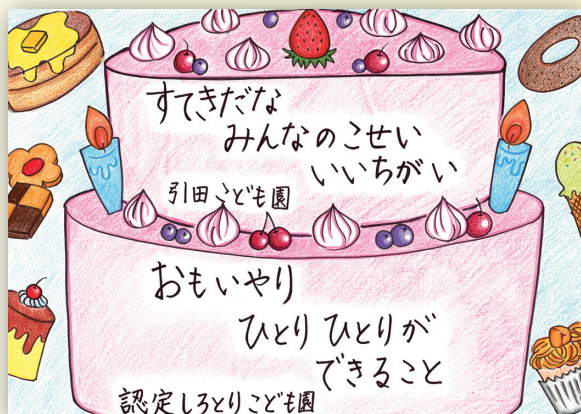 すてきだな
みんなのこせい
いいちがい
引田こども園
おもいやり
ひとりひとりが
できること
認定しろとりこども園